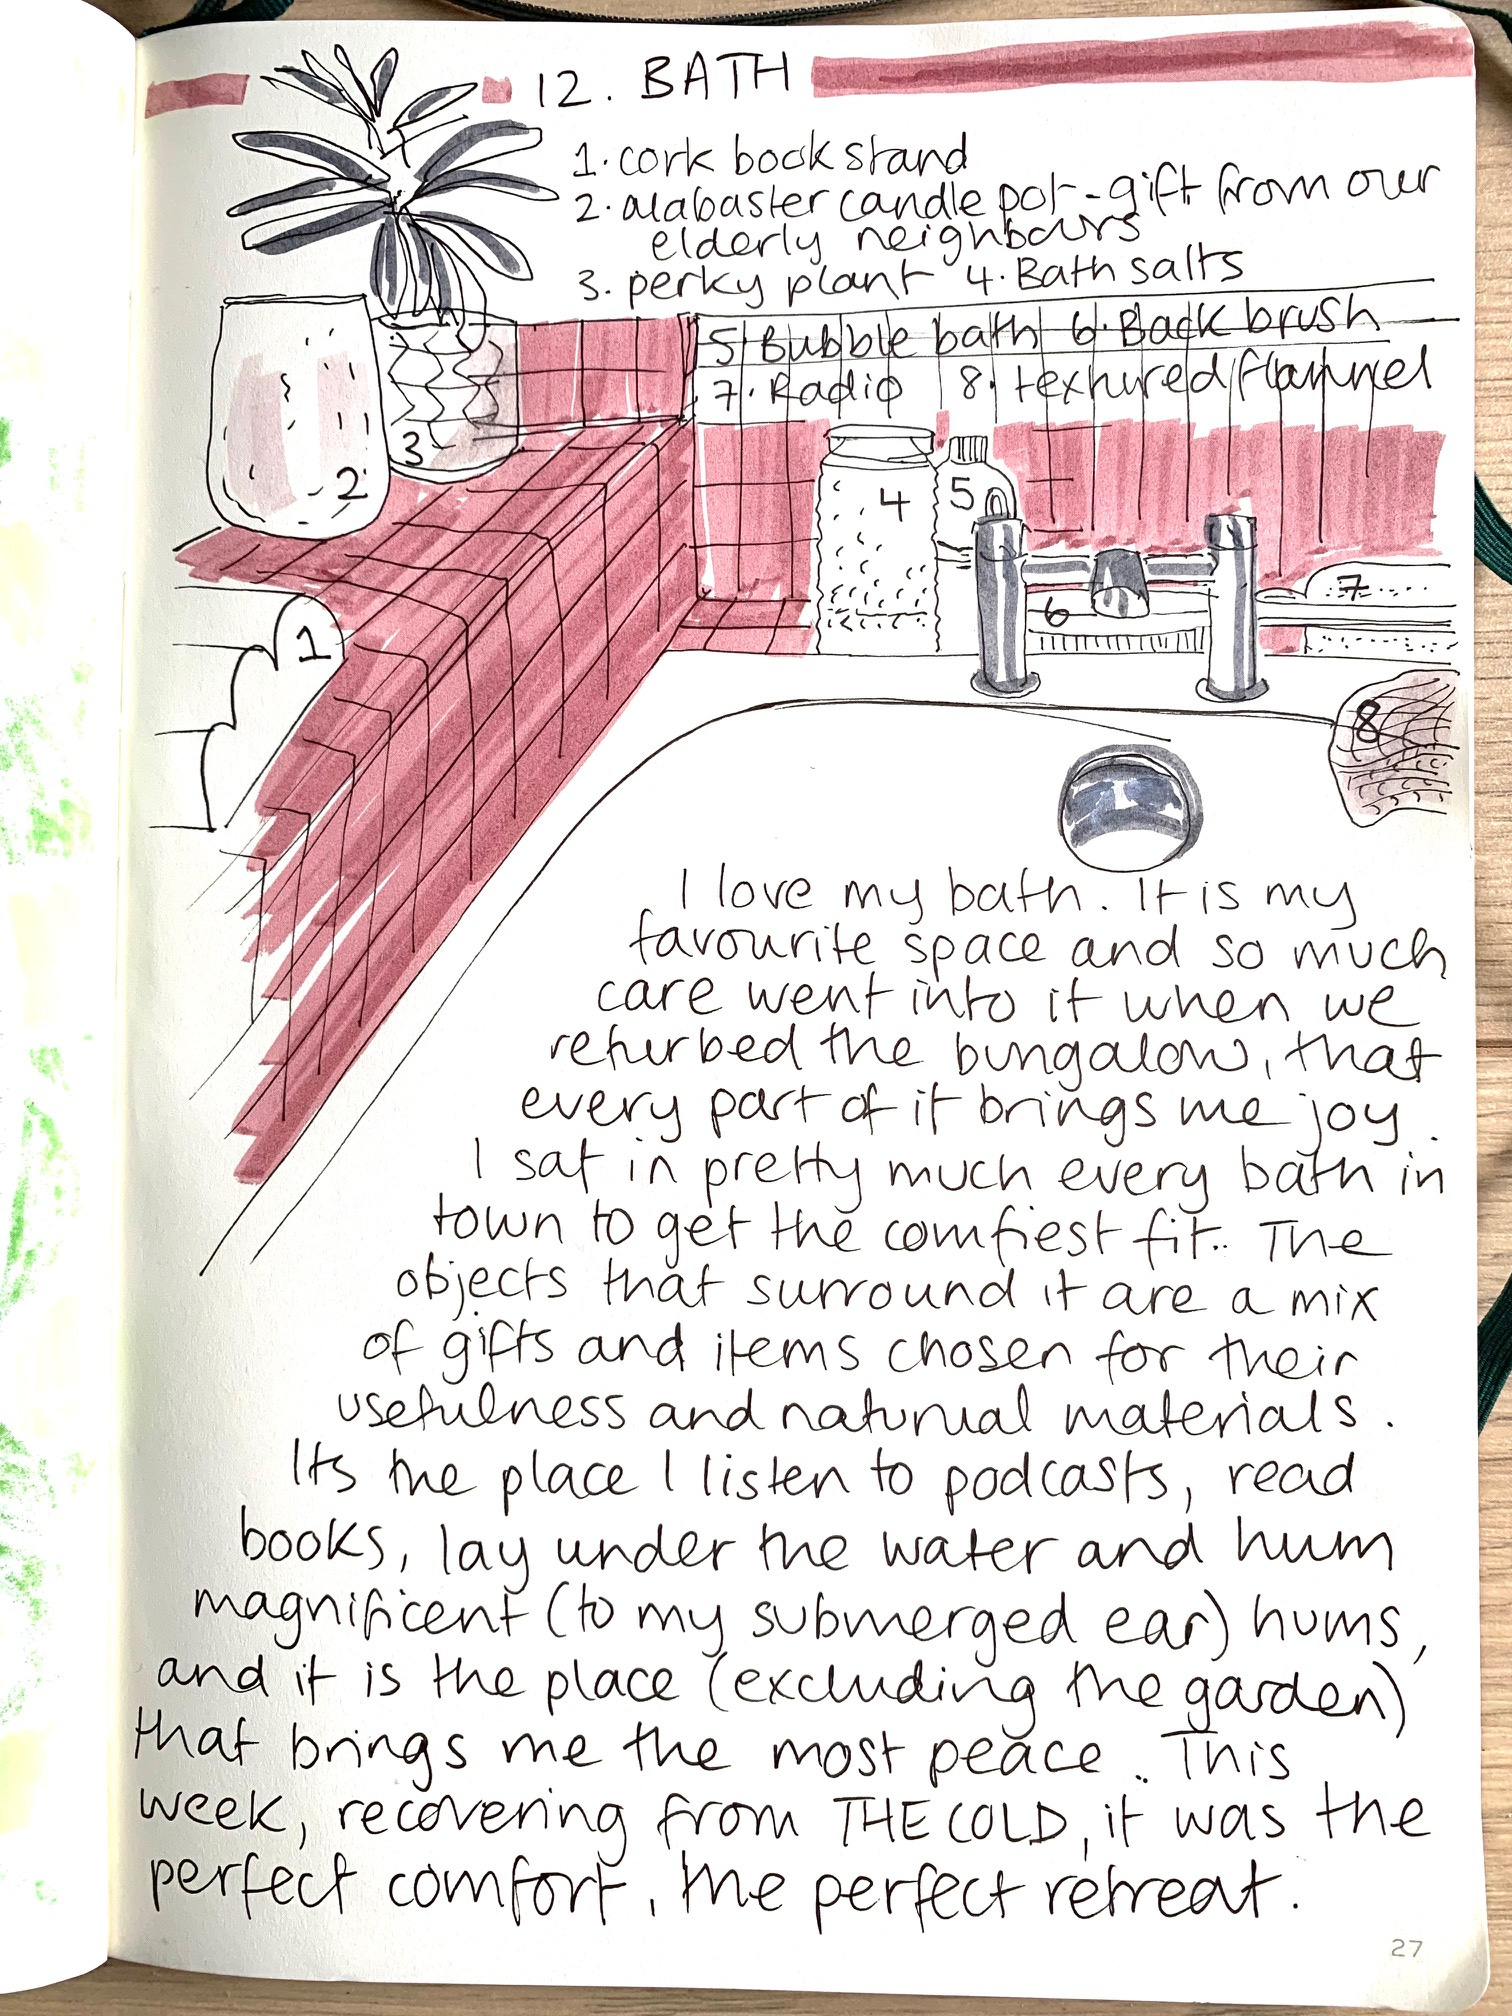 12. BATH
1. cork book stand
2. alabaster candle pot - gift from our
elderly neighbours
3. perky plant 4. Bath salts
5 Bubble bath 6. Back brush
7. Radio 8. textured flannel
3
2
4
5
7
6
1
8
I love my bath. It is my
favourite space and so much
care went into it when we
refurbed the bungalow, that
every part of it brings me joy.
I sat in pretty much every bath in
town to get the comfiest fit.. The
objects that surround it are a mix
of gifts and items chosen for their
usefulness and naturual materials.
Its the place I listen to podcasts, read
books, lay under the water and hum
magnificent (to my submerged ear) hums,
and it is the place (excluding the garden)
that brings me the most peace. This
week, recovering from THE COLD, it was the
perfect comfort, the perfect retreat.
27